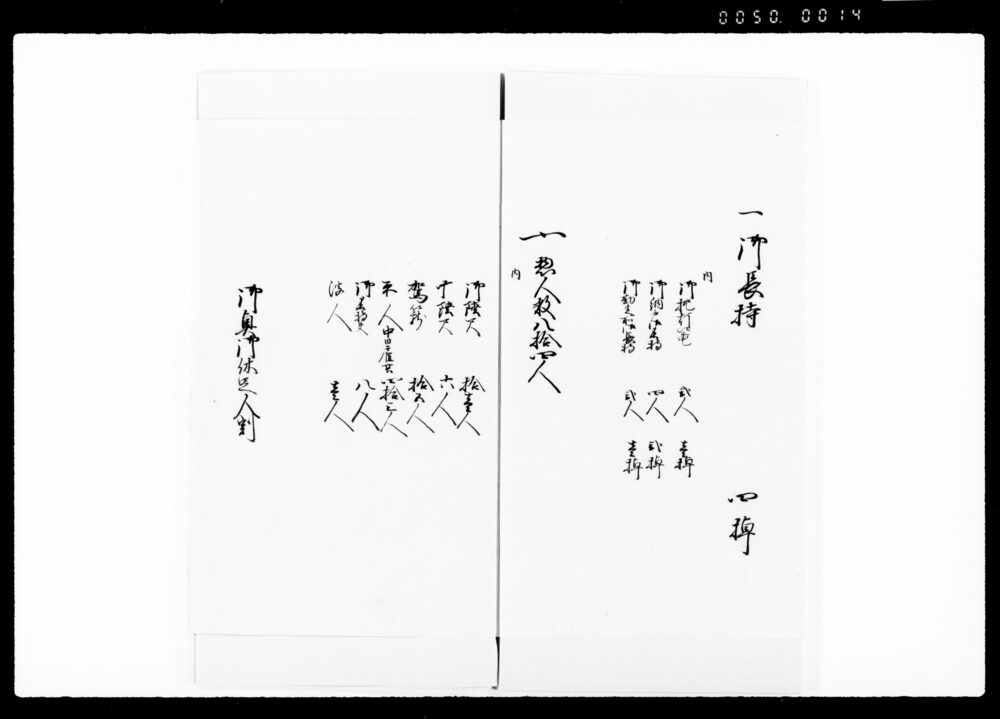 0050.0014
一御長持 四棹
内
御挑灯籠 弐人 壱棹
御納戸御長持 四人 弐棹
長持 弐人 壱棹
一惣人数八拾四人
内
御陸尺 拾壱人
十陸尺 六人
駕籠 拾五人
平人 四拾三人
御長持 八人
壱人
御奥御休足人割